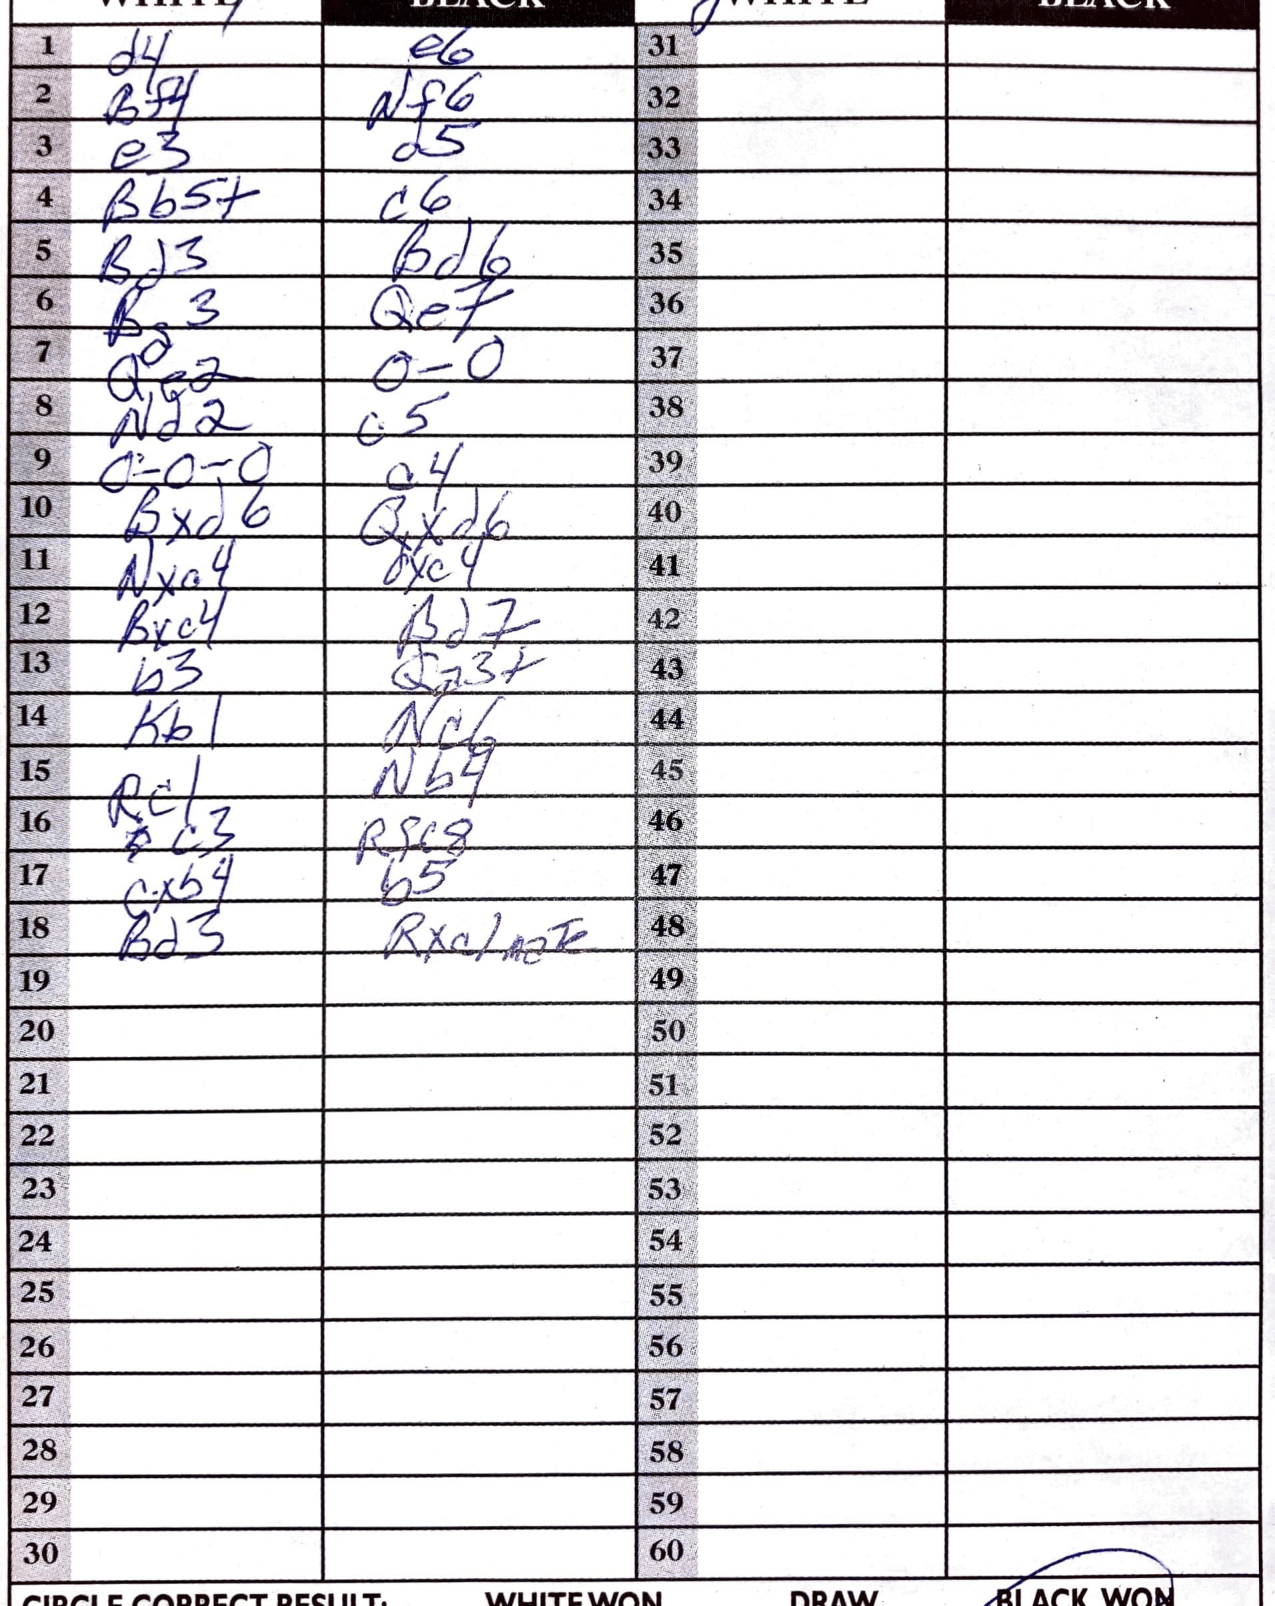 WHITE BLACK WHITE BLACK
1 d4 e6 31
2 Bf4 Nf6 32
3 e3 d5 33
4 Bb5+ c6 34
5 Bd3 Bd6 35
6 Bg3 Qe7 36
7 Qe2 0-0 37
8 Nd2 c5 38
9 0-0-0 c4 39
10 Bxd6 Qxd6 40
11 Nxc4 dxc4 41
12 Bxc4 Bd7 42
13 b3 Qa3+ 43
14 Kb1 Nc6 44
15 Rc1 Nb4 45
16 c3 Rfc8 46
17 cxb4 b5 47
18 Bd3 Rxc1 mate 48
19 49
20 50
21 51
22 52
23 53
24 54
25 55
26 56
27 57
28 58
29 59
30 60
CIRCLE CORRECT RESULT: WHITE WON DRAW BLACK WON